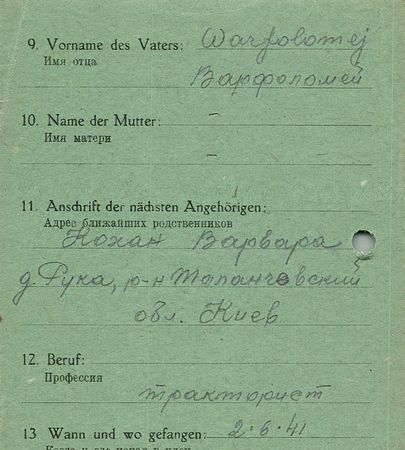 9. Vorname des Vaters: Warfolomej
Имя отца
Варфоломей
10. Name der Mutter: –
Имя матери
–
11. Anschrift der nächsten Angehörigen:
Адрес ближайших родственников
Кохан Варвара
д. Рука, р-н
обл. Киев
12. Beruf:
Профессия
тракторист
13 Wann und wo gefangen: 2·6·41